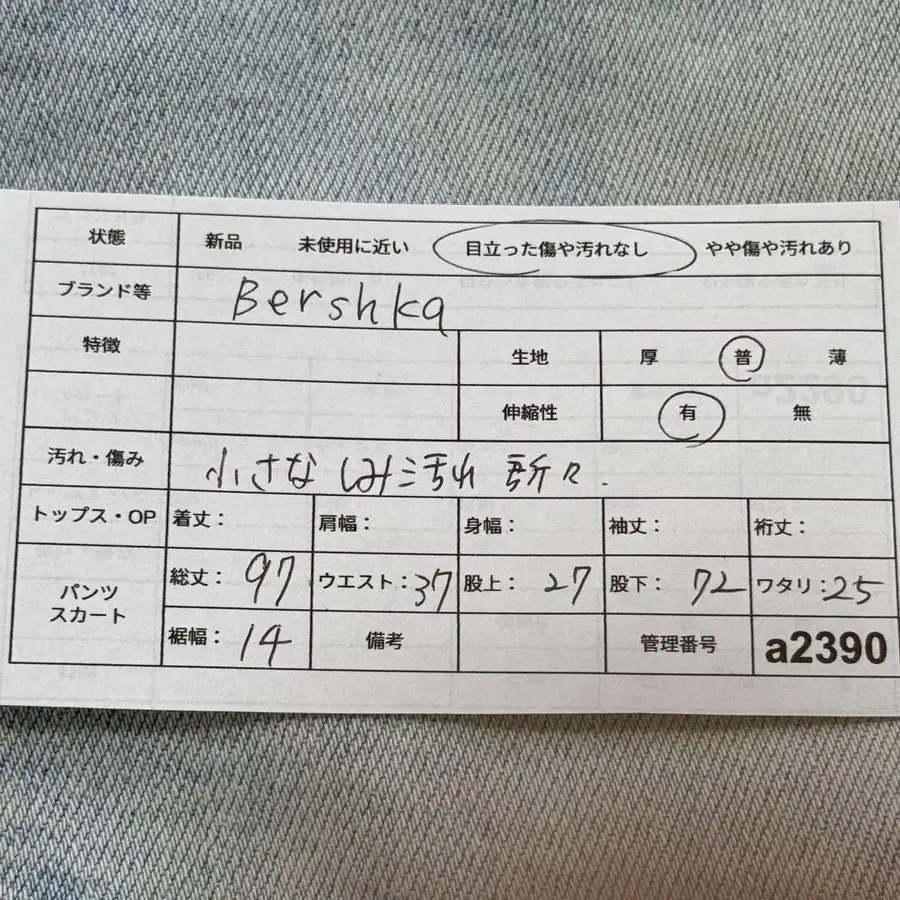 状態 新品 未使用に近い 目立った傷や汚れなし やや傷や汚れあり
ブランド等 Bershka
特徴 生地 厚 普 薄
伸縮性 有 無
汚れ・傷み 小さなしみ汚れ 所々.
トップス・OP 着丈: 肩幅: 身幅: 袖丈: 裄丈:
パンツ スカート 総丈: 97 ウエスト: 37 股上: 27 股下: 72 ワタリ: 25
裾幅: 14 備考 管理番号 a2390